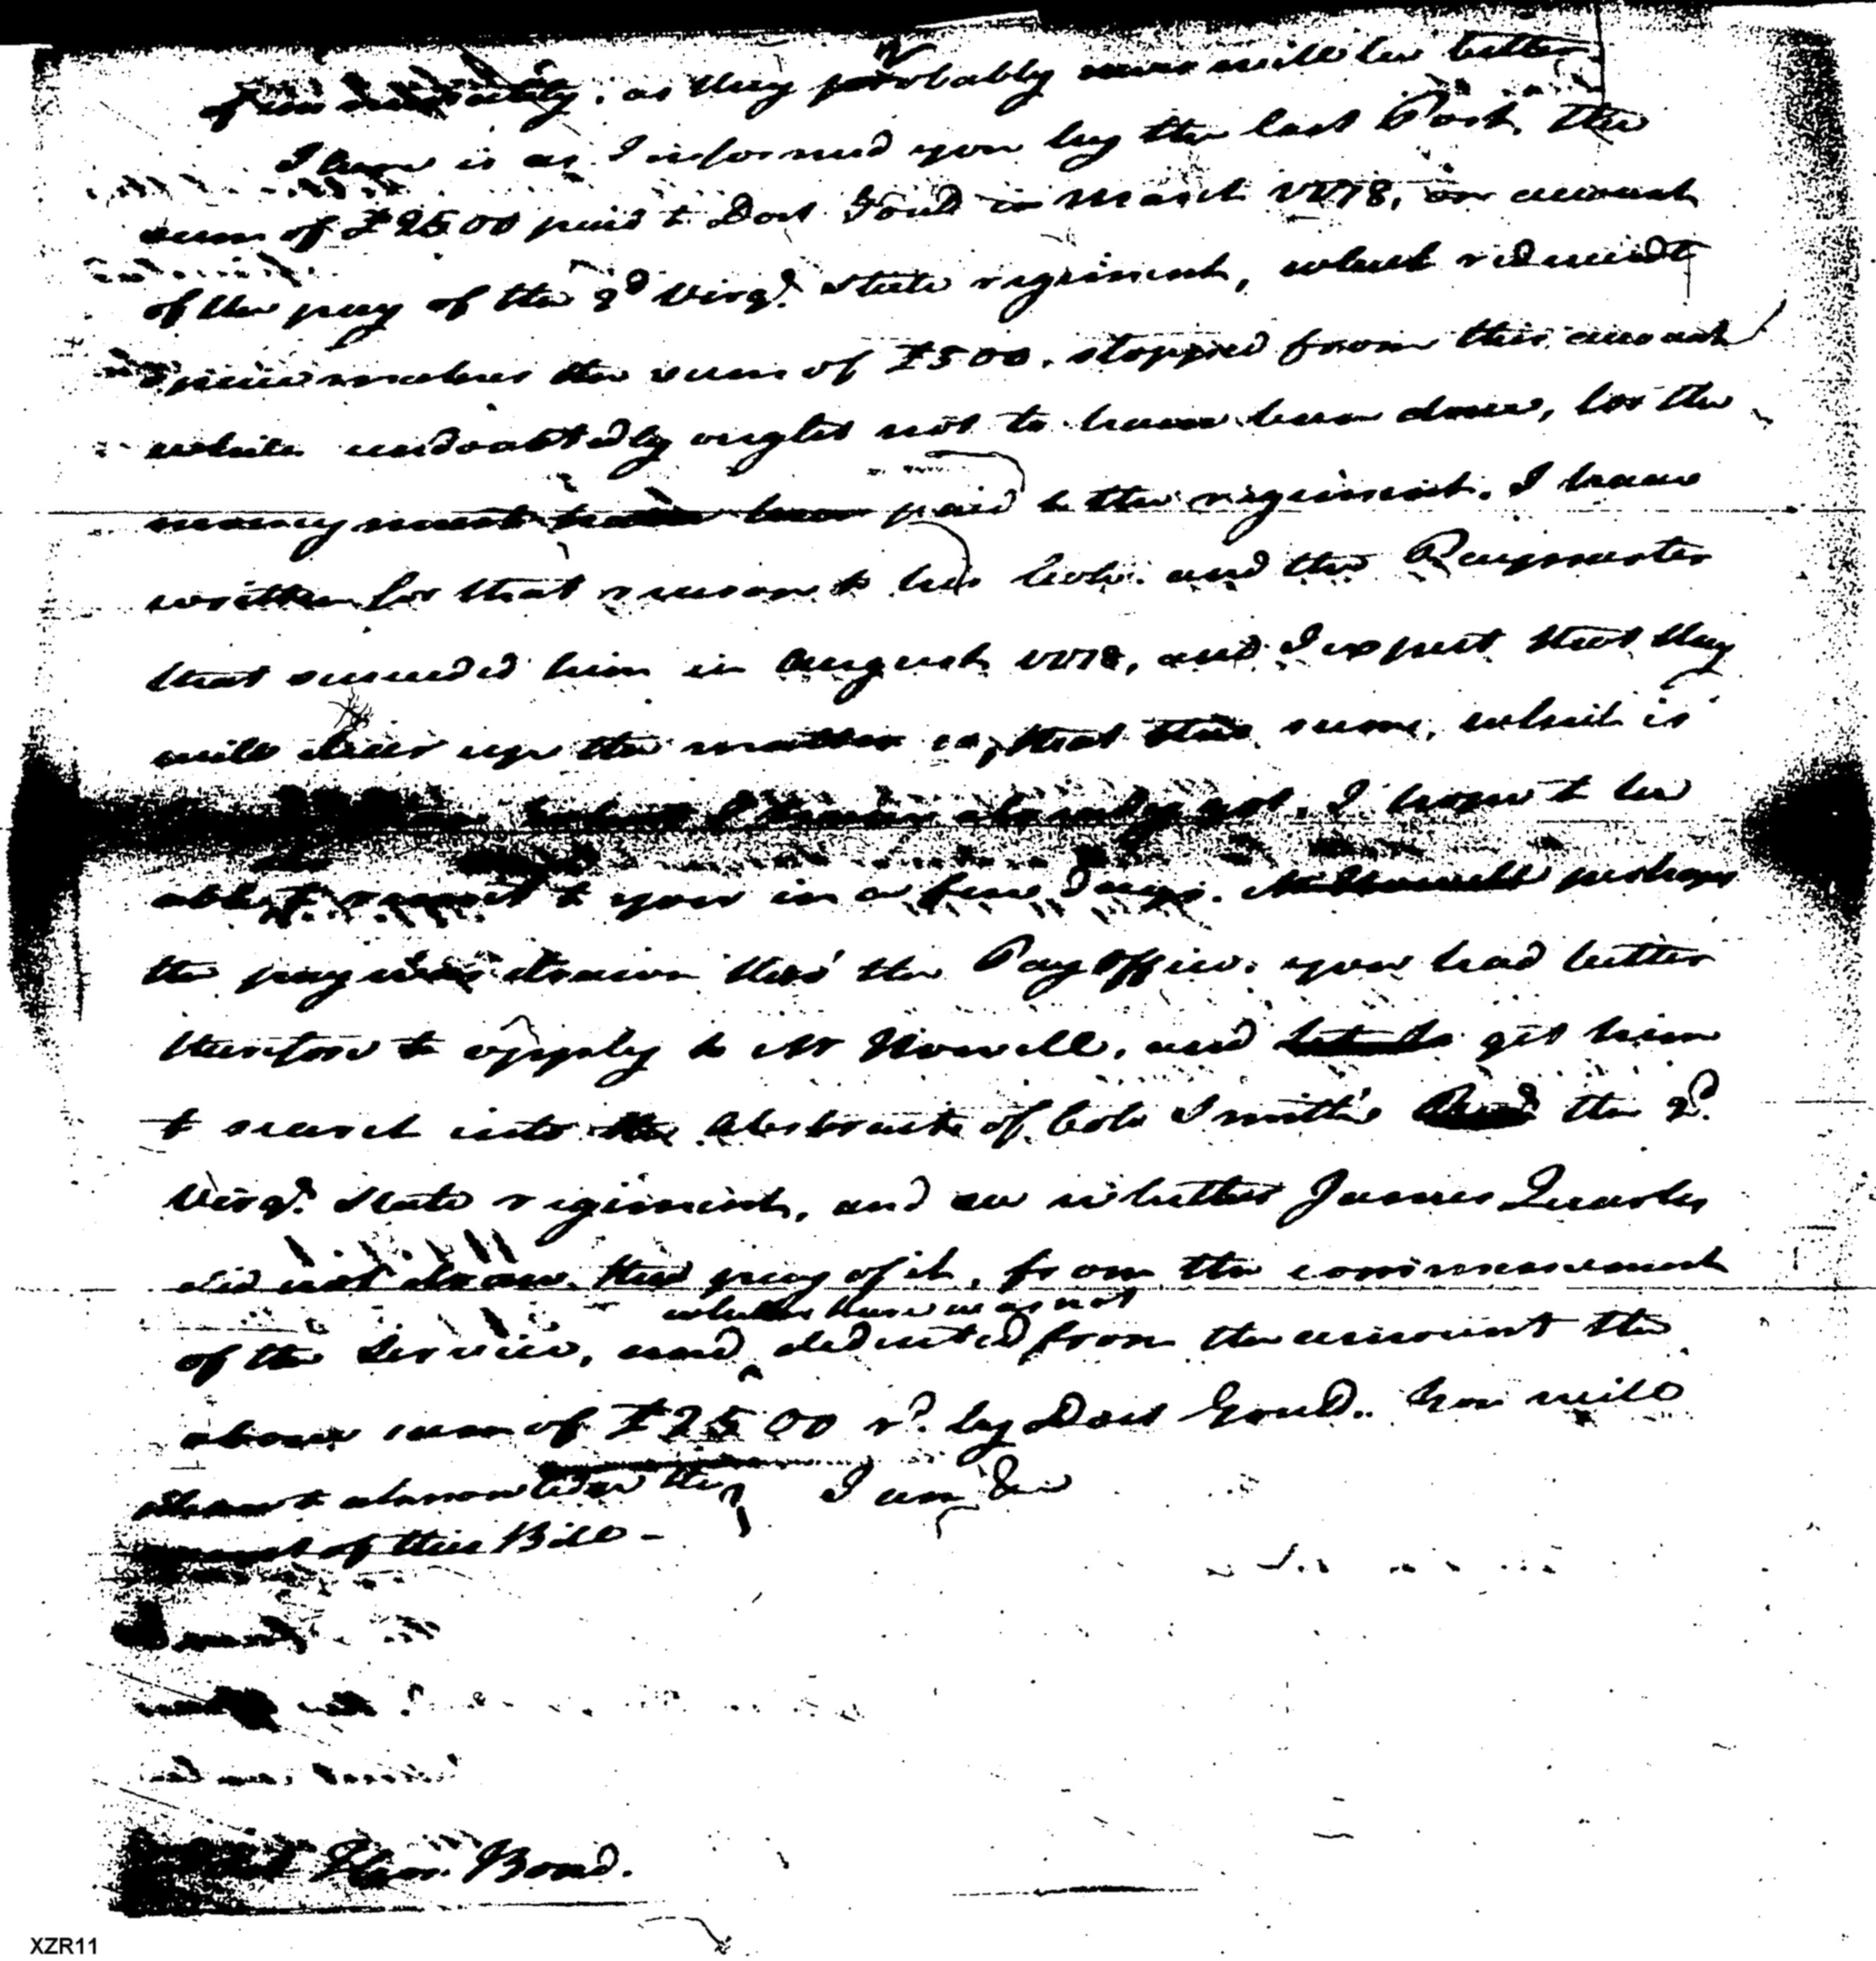 as they probably never will be better
There is as I informed you by the last Post, the
sum of £2500 paid to Doct. Gould in March 1778, on account
of the pay of the 2d Virga. State regiment, which reduced to
specie makes the sum of £500. stopped from this account
which undoubtedly ought not to have been done, for the
money must have been paid to the regiment. I have
written for that reason to his Colo. and the Paymaster
that succeeded him in August 1778, and I expect that they
will clear up the matter so, that this sum, which is
I have already got, I hope to be
able to remit to you in a few days. perhaps
the pay was drawn thro' the Pay Office. you had better
therefore to apply to Mr Howell, and get him
to search into the Abstracts of Colo Smith's the 2d.
Virga. State regiment, and see whether James Quarles
did not draw the pay of it, from the commencement
whether there was not
of the Service, and deducted from the amount the
above sum of £2500 rd. by Doct Gould. You will
please to acknowledge the I am &c
of this Bill -
Thos. Bond.
XZR11